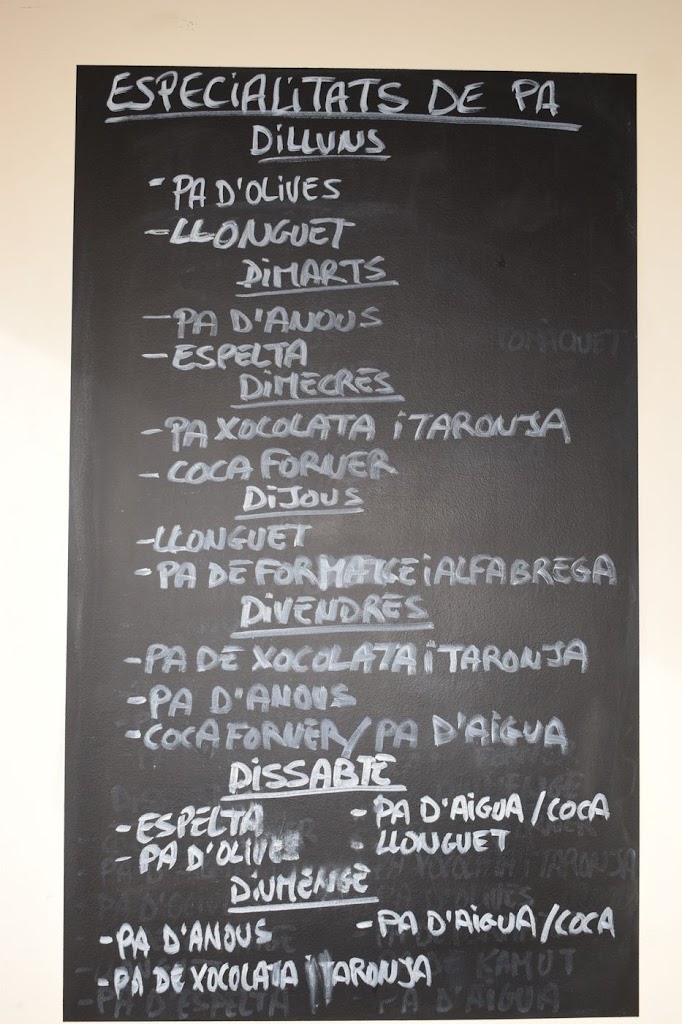 ESPECIALITATS DE PA
DILLUNS
- PA D'OLIVES
- LLONGUET
DIMARTS
- PA D'ANOUS
- ESPELTA
DIMECRES
- PA XOCOLATA i TARONJA
- COCA FORNER
DIJOUS
- LLONGUET
- PA DE FORMATGE i ALFABREGA
DIVENDRES
- PA DE XOCOLATA i TARONJA
- PA D'ANOUS
- COCA FORNER / PA D'AIGUA
DISSABTE
- ESPELTA - PA D'AIGUA / COCA
- PA D'OLIVES - LLONGUET
DIUMENGE
- PA D'ANOUS - PA D'AIGUA / COCA
- PA DE XOCOLATA i TARONJA